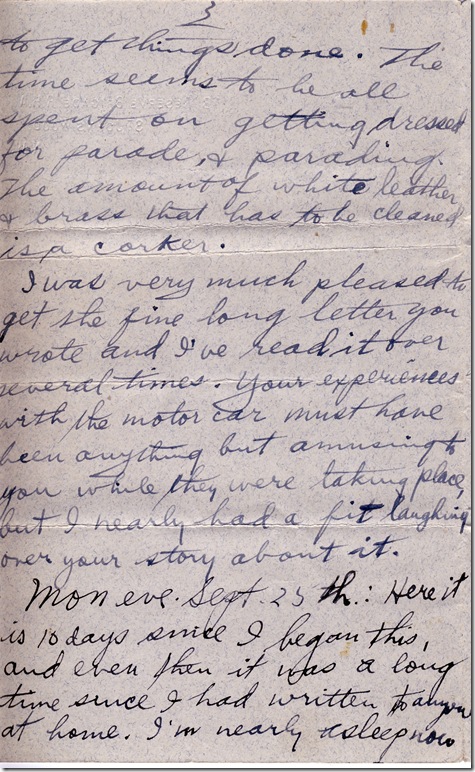 3
to get things done. The
time seems to be all
spent on getting dressed
for parade, & parading.
The amount of white leather
& brass that has to be cleaned
is a corker.
I was very much pleased to
get the fine long letter you
wrote and I've read it over
several times. Your experiences
with the motor car must have
been anything but amusing to
you while they were taking place,
but I nearly had a fit laughing
over your story about it.
Mon eve. Sept. 25th.: Here it
is 10 days since I began this,
and even then it was a long
time since I had written to
at home. I'm nearly asleep now